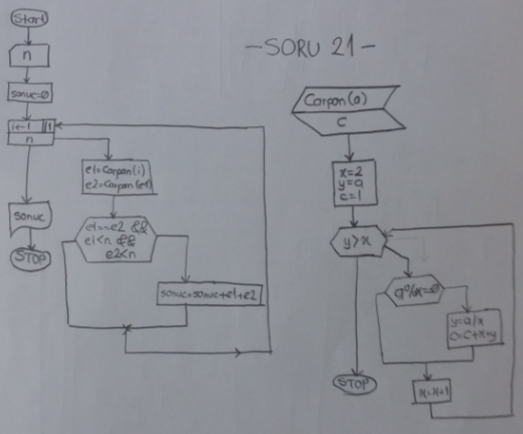 Start
-SORU 21-
n
sonuc=0
i←1 1
n
e1=Carpan(i)
e2=Carpan(e1)
e1==e2 &&
e1<n &&
e2<n
sonuc=sonuc+e1+e2
sonuc
STOP
Carpan(a)
c
x=2
y=a
c=1
y>x
a%x=0
y=a/x
c=c+x+y
x=x+1
STOP